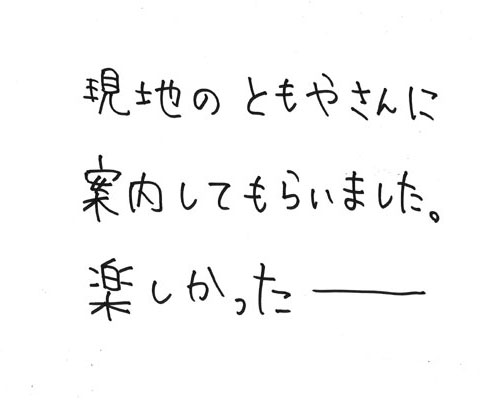 現地のともやさんに
案内してもらいました。
楽しかったー